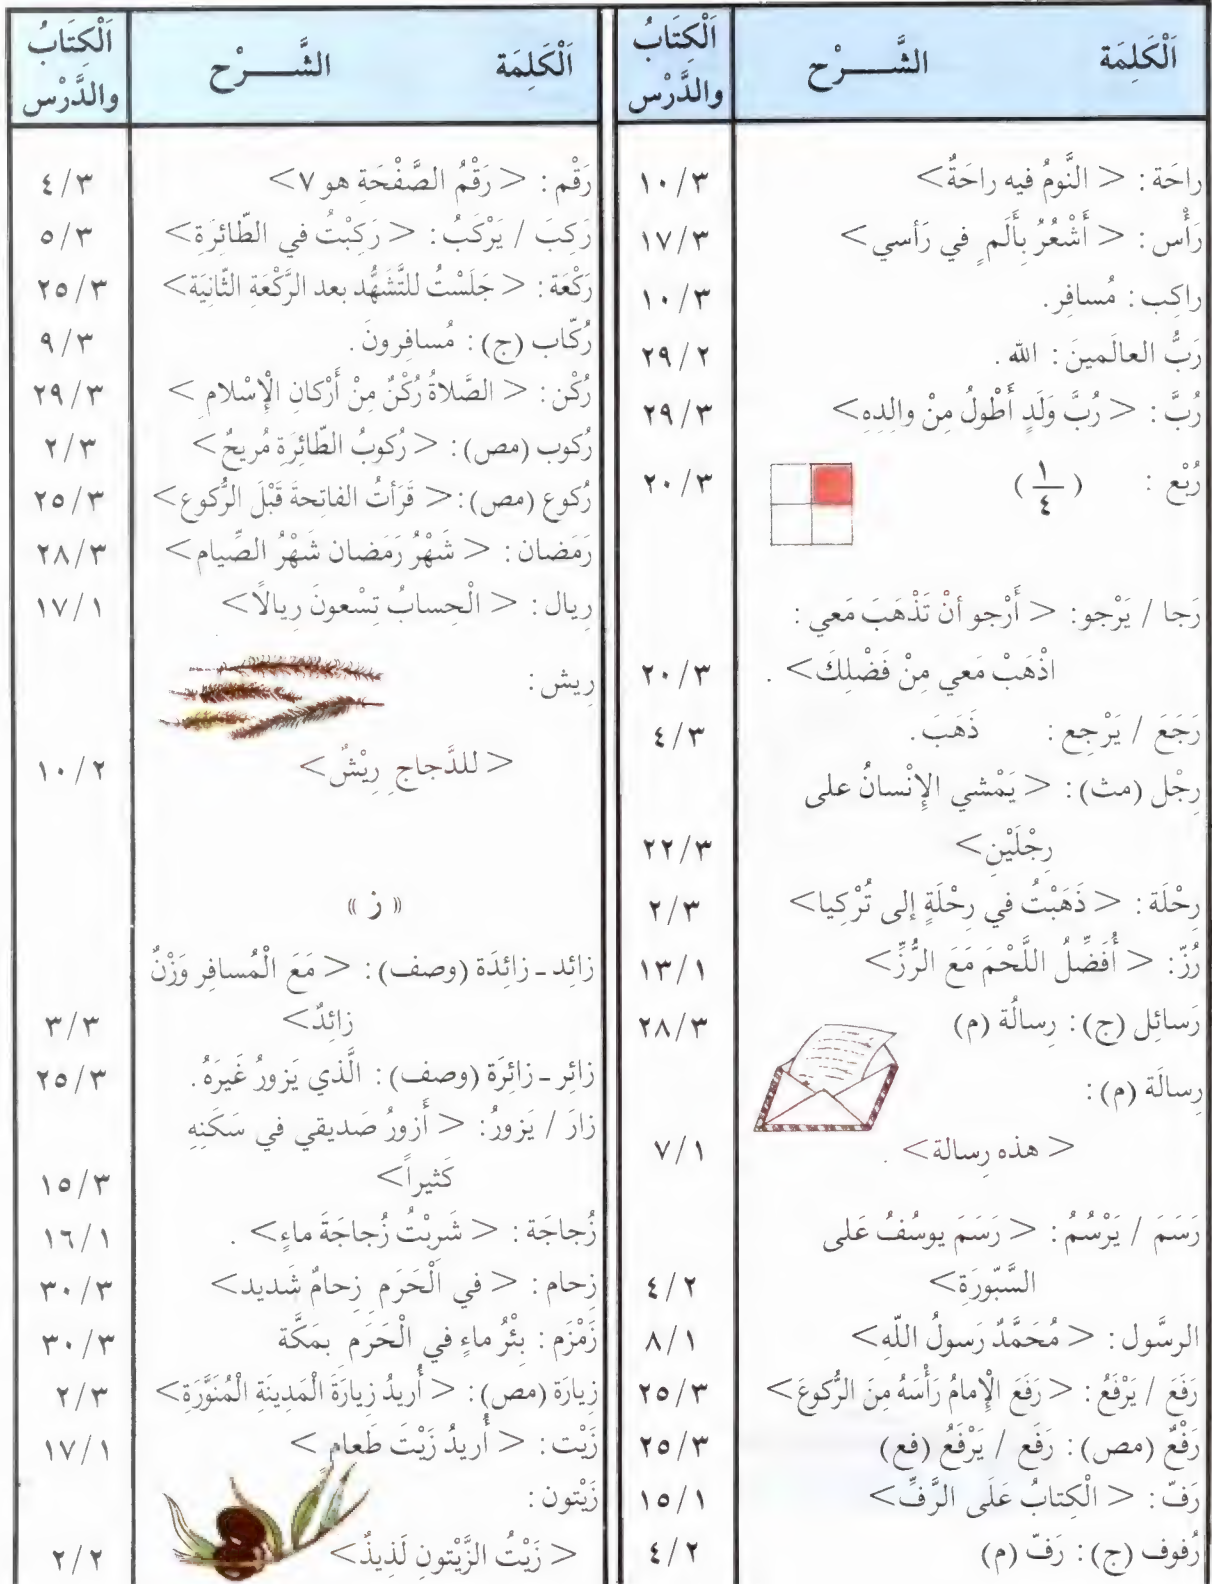 اَلْكَلِمَة الشَّــــرْح اَلْكِتَابُ والدَّرْس
راحَة : < النَّومُ فيه راحَةٌ> ١٠/٣
رَأْس : < أَشْعُرُ بِأَلَمٍ في رَأسي> ١٧/٣
راكِب : مُسافِر. ١٠/٣
رَبُّ العالَمينَ : الله . ٢٩/٢
رُبَّ : < رُبَّ وَلَدٍ أَطْولُ مِنْ والِدِهِ> ٢٩/٣
رُبْع : ( ١/٤ ) ٢٠/٣
رَجا / يَرْجو : < أَرْجو أنْ تَذْهَبَ مَعي :
اذْهَبْ مَعي مِنْ فَضْلِكَ> . ٢٠/٣
رَجَعَ / يَرْجِع : ذَهَبَ . ٤/٣
رِجْل (مث) : < يَمْشي الإنْسانُ على
رِجْلَيْنِ> ٢٢/٣
رِحْلَة : < ذَهَبْتُ في رِحْلَةٍ إلى تُرْكِيا> ٢/٣
رُزّ : < أُفَضِّلُ اللَّحْمَ مَعَ الرُّزِّ> ١٣/١
رَسائِل (ج) : رِسالُة (م) ٢٨/٣
رِسالَة (م) :
< هذه رِسالة> . ٧/١
رَسَمَ / يَرْسُمُ : < رَسَمَ يوسُفُ عَلى
السَّبّورَةِ> ٤/٢
الرسَّول : < مُحَمَّدٌ رَسولُ اللّهِ> ٨/١
رَفَعَ / يَرْفَعُ : < رَفَعَ الْإِمامُ رَأْسَهُ مِنَ الرُّكوعَ> ٢٥/٣
رَفْعٌ (مص) : رَفَع / يَرْفَعُ (فع) ٢٥/٣
رَفّ : < الْكِتابُ عَلَى الرَّفِّ> ١٥/١
رُفوف (ج) : رَفّ (م) ٤/٢
اَلْكَلِمَة الشَّــــرْح اَلْكِتَابُ والدَّرْس
رَقْم : < رَقْمُ الصَّفْحَةِ هو ٧> ٤/٣
رَكِبَ / يَرْكَبُ : < رَكِبْتُ في الطّائِرَةِ> ٥/٣
رَكْعَة : < جَلَسْتُ للتَّشَهُّد بعد الرَّكْعَةِ الثّانِيَة> ٢٥/٣
رُكّاب (ج) : مُسافِرونَ . ٩/٣
رُكْن : < الصَّلاةُ رُكْنٌ مِنْ أَرْكانِ الْإِسْلامِ > ٢٩/٣
رُكوب (مص) : < رُكوبُ الطّائِرَةِ مُريحٌ> ٢/٣
رُكوع (مص) : < قَرَأتُ الفاتِحةَ قَبْلَ الرُّكوع> ٢٥/٣
رَمَضان : < شَهْرُ رَمَضان شَهْرُ الصِّيام> ٢٨/٣
رِيال : < الْحِسابُ تِسْعونَ رِيالًا> ١٧/١
رِيش :
< للدَّجاجِ رِيْشٌ> ١٠/٢
« ز »
زائِد ـ زائِدَة (وصف) : < مَعَ الْمُسافِر وَزْنٌ
زائِدٌ> ٣/٣
زائِر ـ زائِرَة (وصف) : الَّذي يَزورُ غَيرَهُ . ٢٥/٣
زارَ / يَزورُ : < أَزورُ صَديقي في سَكَنِهِ
كَثيراً> ١٥/٣
زُجاجَة : < شَرِبْتُ زُجاجَةَ ماءٍ> . ١٦/١
زِحام : < في اَلْحَرَمِ زِحامٌ شَديد> ٣٠/٣
زَمْزَم : بِئْرُ ماءٍ في الْحَرَمِ بِمَكَّة ٣٠/٣
زيارَة (مص) : < أُريدُ زِيارَةَ الْمَدِينَةِ الْمُنَوَّرَةِ> ٢/٣
زَيْت : < أُريدُ زَيْتَ طَعامٍ > ١٧/١
زَيْتون :
< زَيْتُ الزَّيْتونِ لَذِيذٌ> ٢/٢